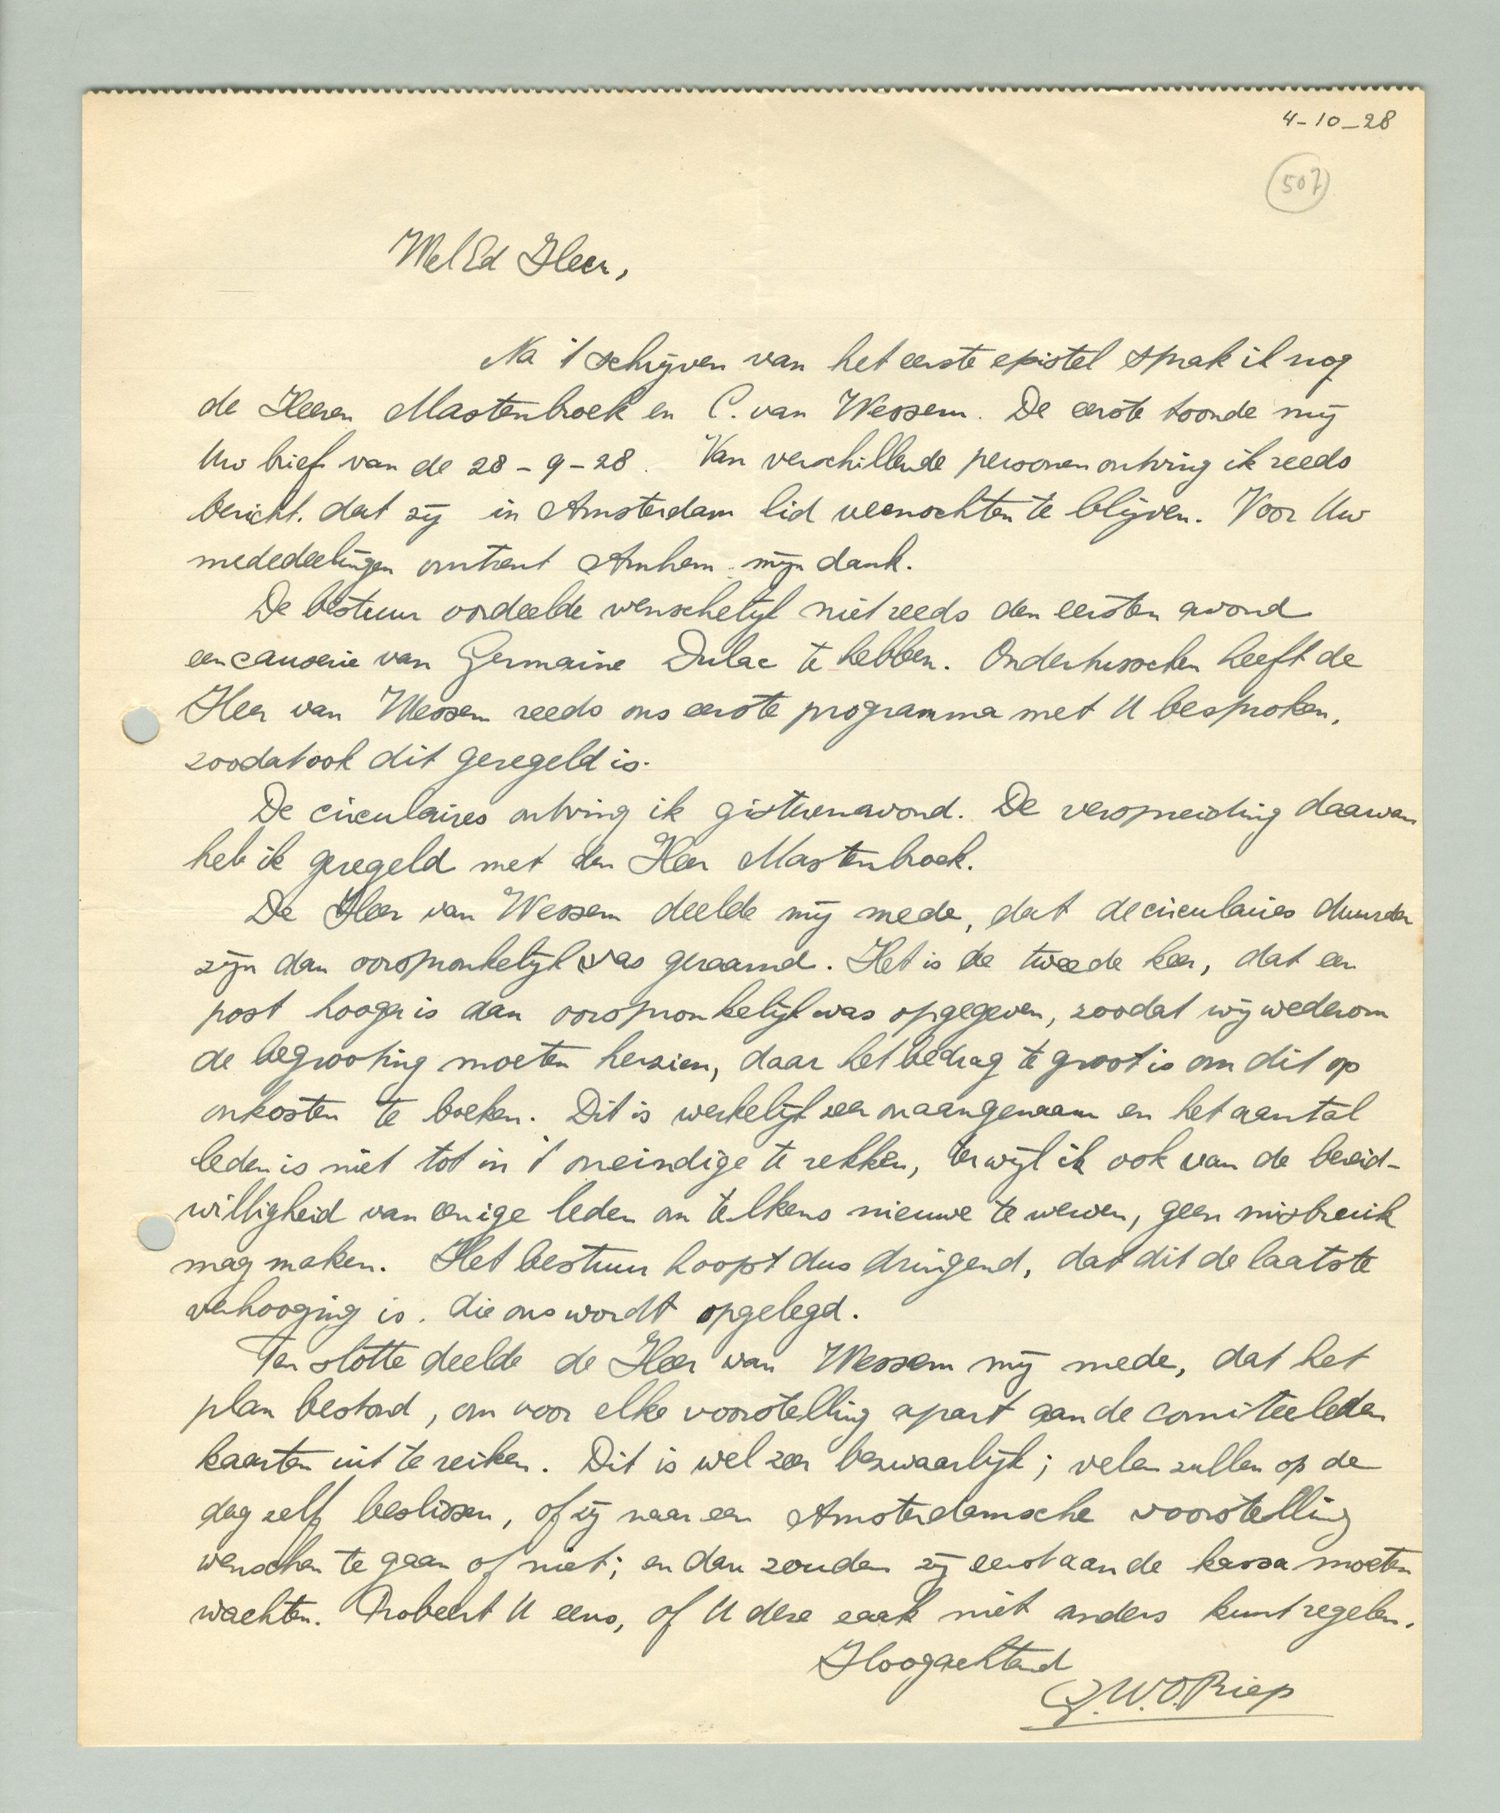 4-10-28
507
WelEd Heer,
Na 't schrijven van het eerste epistel sprak ik nog
de Heeren Mastenbroek en C. van Wessem. De eerste toonde mij
Uw brief van de 28-9-28. Van verschillende personen ontving ik reeds
bericht, dat zij in Amsterdam lid wenschten te blijven. Voor Uw
mededeelingen omtrent Arnhem mijn dank.
De bestuur oordeelde wenschelijk niet reeds den eersten avond
een causerie van Germaine Dulac te hebben. Ondertusschen heeft de
Heer van Wessem reeds ons eerste programma met U besproken,
zoodat ook dit geregeld is.
De circulaires ontving ik gisterenavond. De verspreiding daarvan
heb ik geregeld met den Heer Mastenbroek.
De Heer van Wessem deelde mij mede, dat de circulaires duurder
zijn dan oorspronkelijk was geraamd. Het is de tweede keer, dat een
post hooger is dan oorspronkelijk was opgegeven, zoodat wij wederom
de begrooting moeten herzien, daar het bedrag te groot is om dit op
onkosten te boeken. Dit is werkelijk zeer onaangenaam en het aantal
leden is niet tot in 't oneindige te rekken, terwijl ik ook van de bereid-
willigheid van eenige leden om telkens nieuwe te werven, geen misbruik
mag maken. Het bestuur hoopt dus dringend, dat dit de laatste
verhooging is, die ons wordt opgelegd.
Ten slotte deelde de Heer van Wessem mij mede, dat het
plan bestond, om voor elke voorstelling apart aan de comiteeleden
kaarten uit te reiken. Dit is wel zeer bezwaarlijk; velen zullen op de
dag zelf beslissen, of zij naar een Amsterdamsche voorstelling
wenschen te gaan of niet; en dan zouden zij eerst aan de kassa moeten
wachten. Probeert U eens, of U deze zaak niet anders kunt regelen.
Hoogachtend
J.W.O. Riep